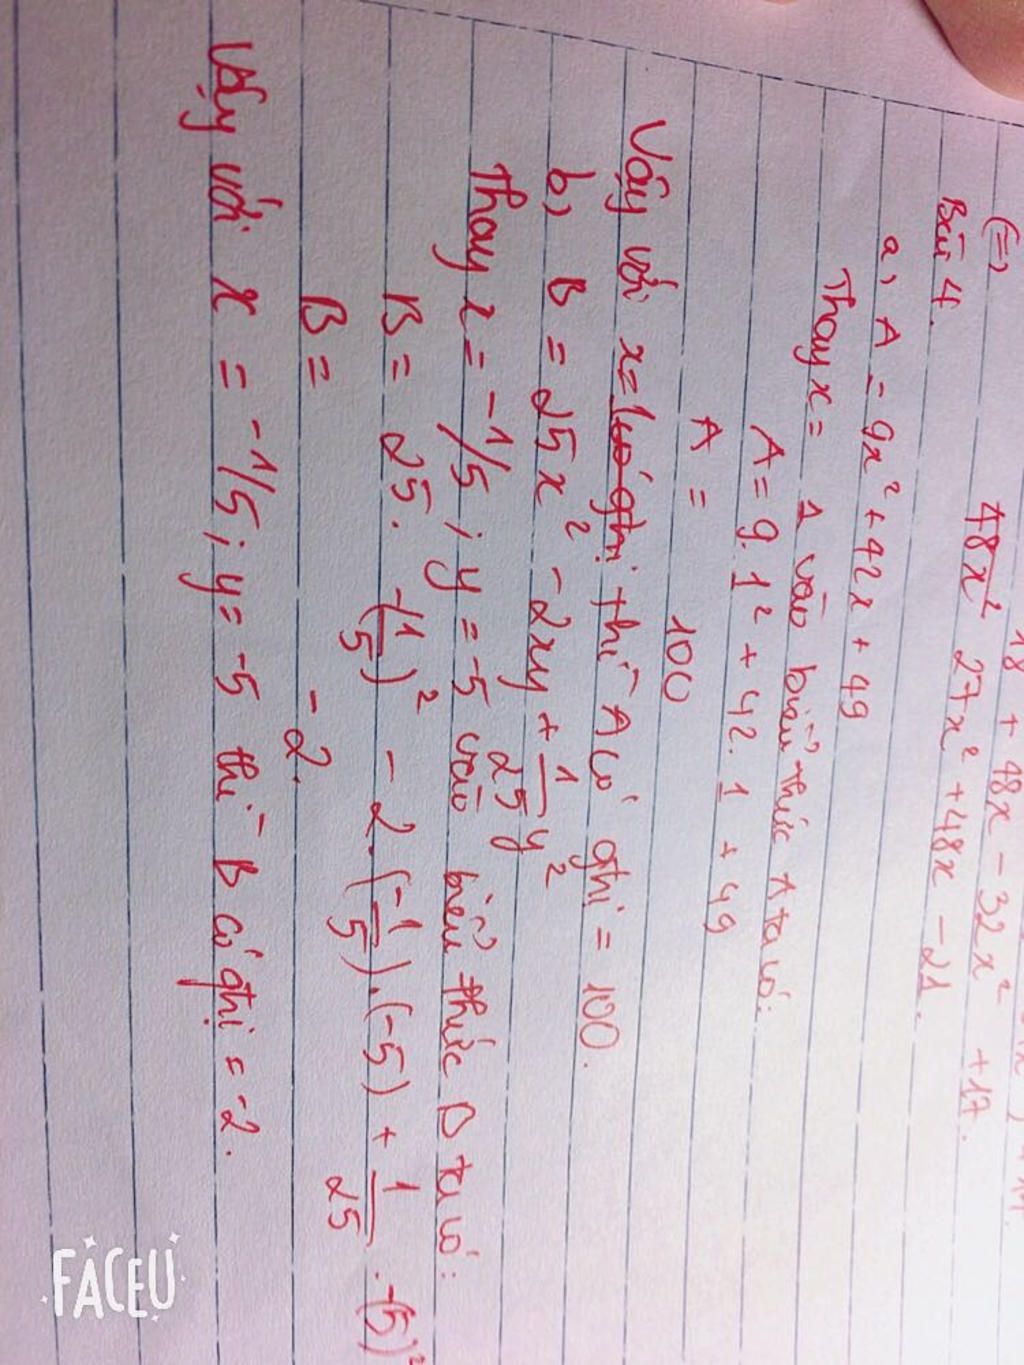 18 + 48x - 32x² + 17.
(=) 48x² 27x² + 48x - 21.
Bài 4.
a, A = 9x² + 42x + 49
Thay x = 1 vào biểu thức A ta có:
A = 9. 1² + 42. 1 + 49
A = 100
Vậy với x = 1 thì A có ghi = 100.
b, B = 25x² - 2xy + 1/25 y²
Thay x = -1/5 ; y = -5 vào biểu thức B ta có:
B = 25. -(1/5)² - 2.(-1/5).(-5) + 1/25 . -(5)²
B = -2.
Vậy với x = -1/5 ; y = -5 thì B có ghị = -2.
FACEU